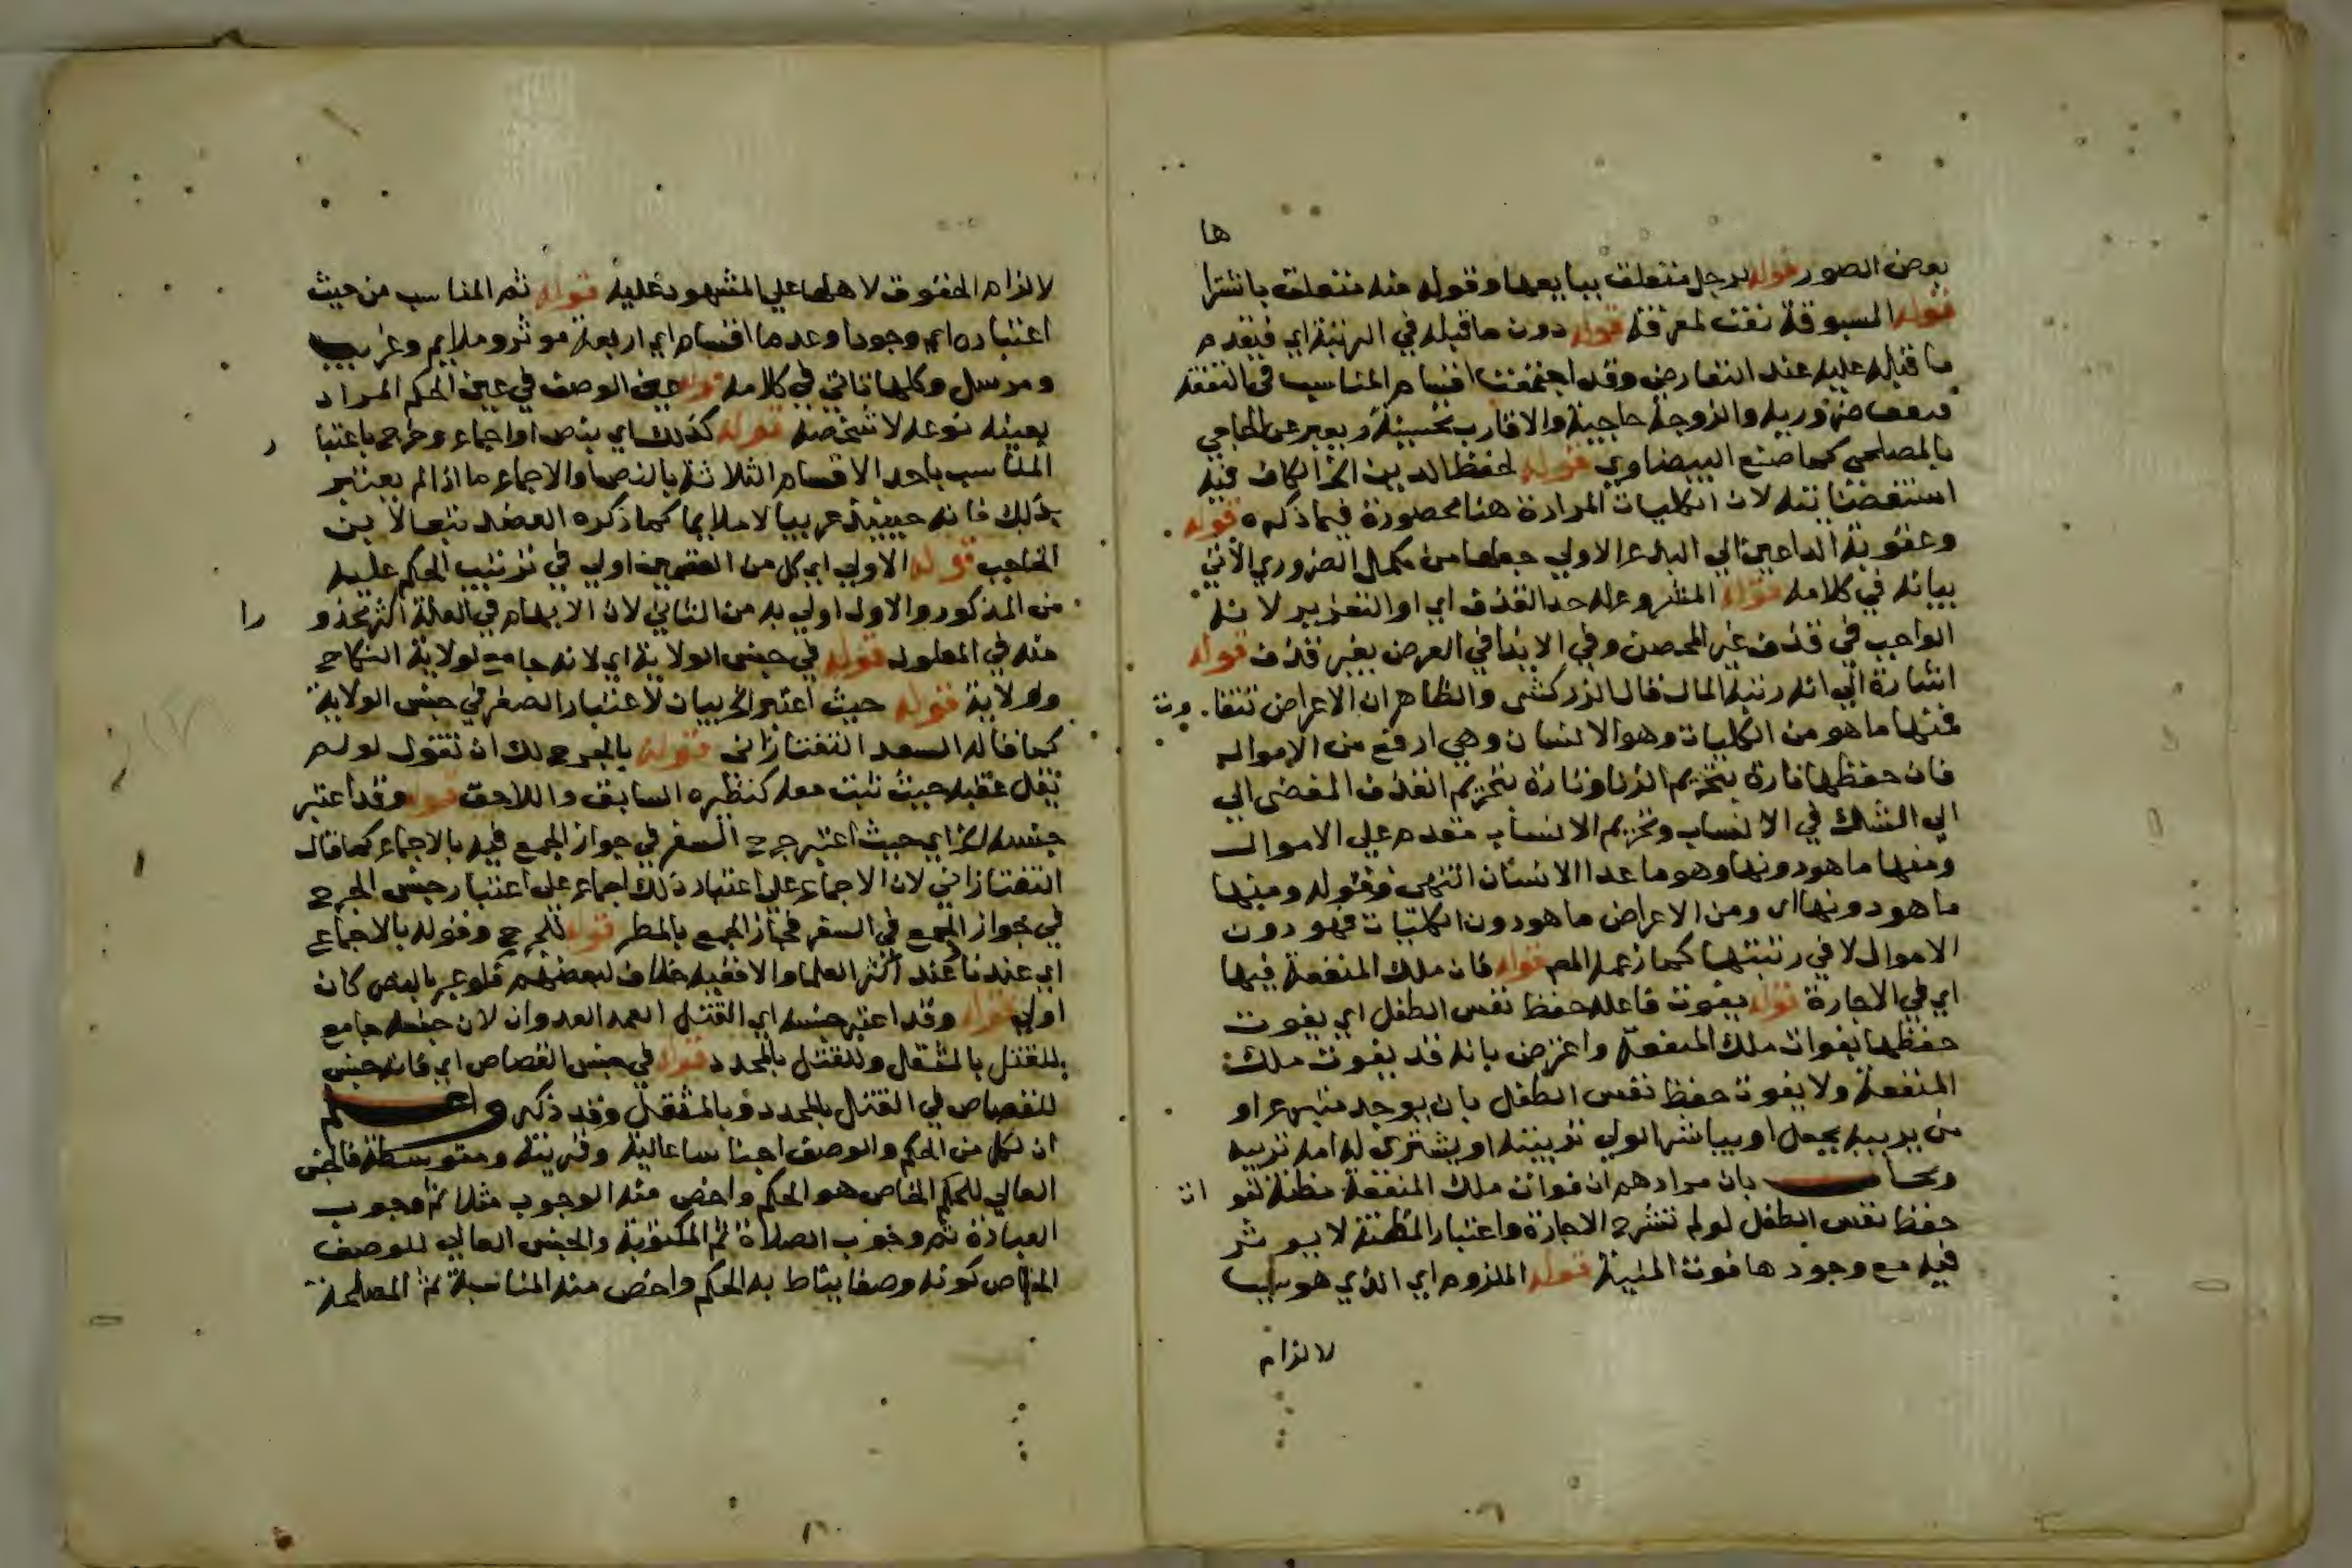 بعض الصور قوله لرجل متعلق ببيايعها وقوله منه متعلق باشترا ها
قوله المسوقة نعت لمعرفة قوله دون ما قبله في الرتبة اي فيقدم
ما قبله عليه عند التعارض وقد اجتمعت اقسام المناسب في النفقة
ضرورية والزوجة حاجية والاقارب تحسينية ويعبر عن الحاجي
بالمصلحي كما صنع البيضاوي قوله لحفظ الدين الخ الكاف فيه
استقصائية لان الكليات المرادة هنا محصورة فيما ذكره قوله
وعقوبة الداعين الي البدع الاولي جعلها من مكمل الضروري الاتي
بيانه في كلامه قوله المشروع له حد القذف اي او التعزير لانه
الواجب في قذف غير المحصن وفي الايذا في العرض بغير قذف قوله
اشارة الي انه رتبة المال قال الزركشي والظاهر ان الاعراض تتفا وت
فمنها ما هو من الكليات وهو الانسان وهي ارفع من الاموال
فان حفظها تارة بتحريم الزنا وتارة بتحريم القذف المفضي الي
الي الشك في الانساب وتحريم الانساب مقدم علي الاموال
ومنها ما هو دونها وهو ما عدا الانسان انتهى فقوله ومنها
ما هو دونها اي ومن الاعراض ما هو دون الكليات فهو دون
الاموال لا في رتبتها كما زعمه المص قوله فان ملك المنفعة فيها
اي في الاجارة قوله يفوت فاعله حفظ نفس الطفل اي يفوت
حفظها بفوات ملك المنفعة واعترض بانه قد يفوت ملك
المنفعة ولا يفوت حفظ نفس الطفل بان يوجد متبرع او
من يربيه بجعل او يباشر الولي تربيته او يشتري له امه تربيه
ويجاب بان مرادهم ان فوات ملك المنفعة مظنة لفو ات
حفظ نفس الطفل لو لم تشرع الاجارة واعتبار المظنة لا يوثر
فيه مع وجودها فوت المئية قوله الملزوم اي الذي هو سبب
لالزام
لالزام الحقوق لاهلها علي المشهود عليه قوله ثم المناسب من حيث
اعتباره اي وجودا وعدما اقسام اي اربعة موثر وملايم وغريب
ومرسل وكلها تاتي في كلامه قوله عين الوصف في عين الحكم المراد
بعينه نوعه لا شخصه قوله كذلك اي بنص او اجماع وخرج باعتبا ر
المناسب باحد الاقسام الثلاثة بالنص والاجماع ما اذا لم يعتبر
بذلك فانه حينيذ غريبا لا ملايما كما ذكره العضد تبعا لابن
الحاجب قوله الاولي اي كل من القسمين اولي في ترتيب الحكم عليه
من المذكور والاول اولي به من الثاني لان الابهام في العلة اكثر محذو را
منه في المعلول قوله في جنس الولاية اي لانه جامع لولاية النكاح
وولاية قوله حيث اعتبر الخ بيان لاعتبار الصغر في جنس الولاية
كما قاله السعد التفتازاني قوله بالحرج لك ان تقول لو لم
يقل عقبه حيث ثبت معه كنظيره السابق واللاحق قوله وقد اعتبر
جنسه الخ اي حيث اعتبر حرج السفر في جواز الجمع فيه بالاجماع كما قال
التفتازاني لان الاجماع علي اعتبار ذلك اجماع علي اعتبار جنس الحرج
في جواز الجمع في السفر فجاز الجمع بالمطر قوله للحرج وقوله بالاجماع
اي عندنا عند اكثر العلما والا ففيه خلاف لبعضهم فلو عبر بالنص كان
اولي قوله وقد اعتبر جنسه اي القتل العمد العدوان لان جنسه جامع
للقتل بالمثقل وللقتل بالمحدد قوله في جنس القصاص اي فانه جنس
للقصاص في القتل بالمحدد وبالمثقل وقد ذكر واعلم
ان لكل من الحكم والوصف اجناسا عالية وقريبة ومتوسطة فالجنس
العالي للحكم الخاص هو الحكم واخص منه الوجوب مثلا ثم وجوب
العبادة ثم وجوب الصلاة ثم المكتوبة والجنس العالي للوصف
الخاص كونه وصفا يناط به الحكم واخص منه المناسبة ثم المصلحة